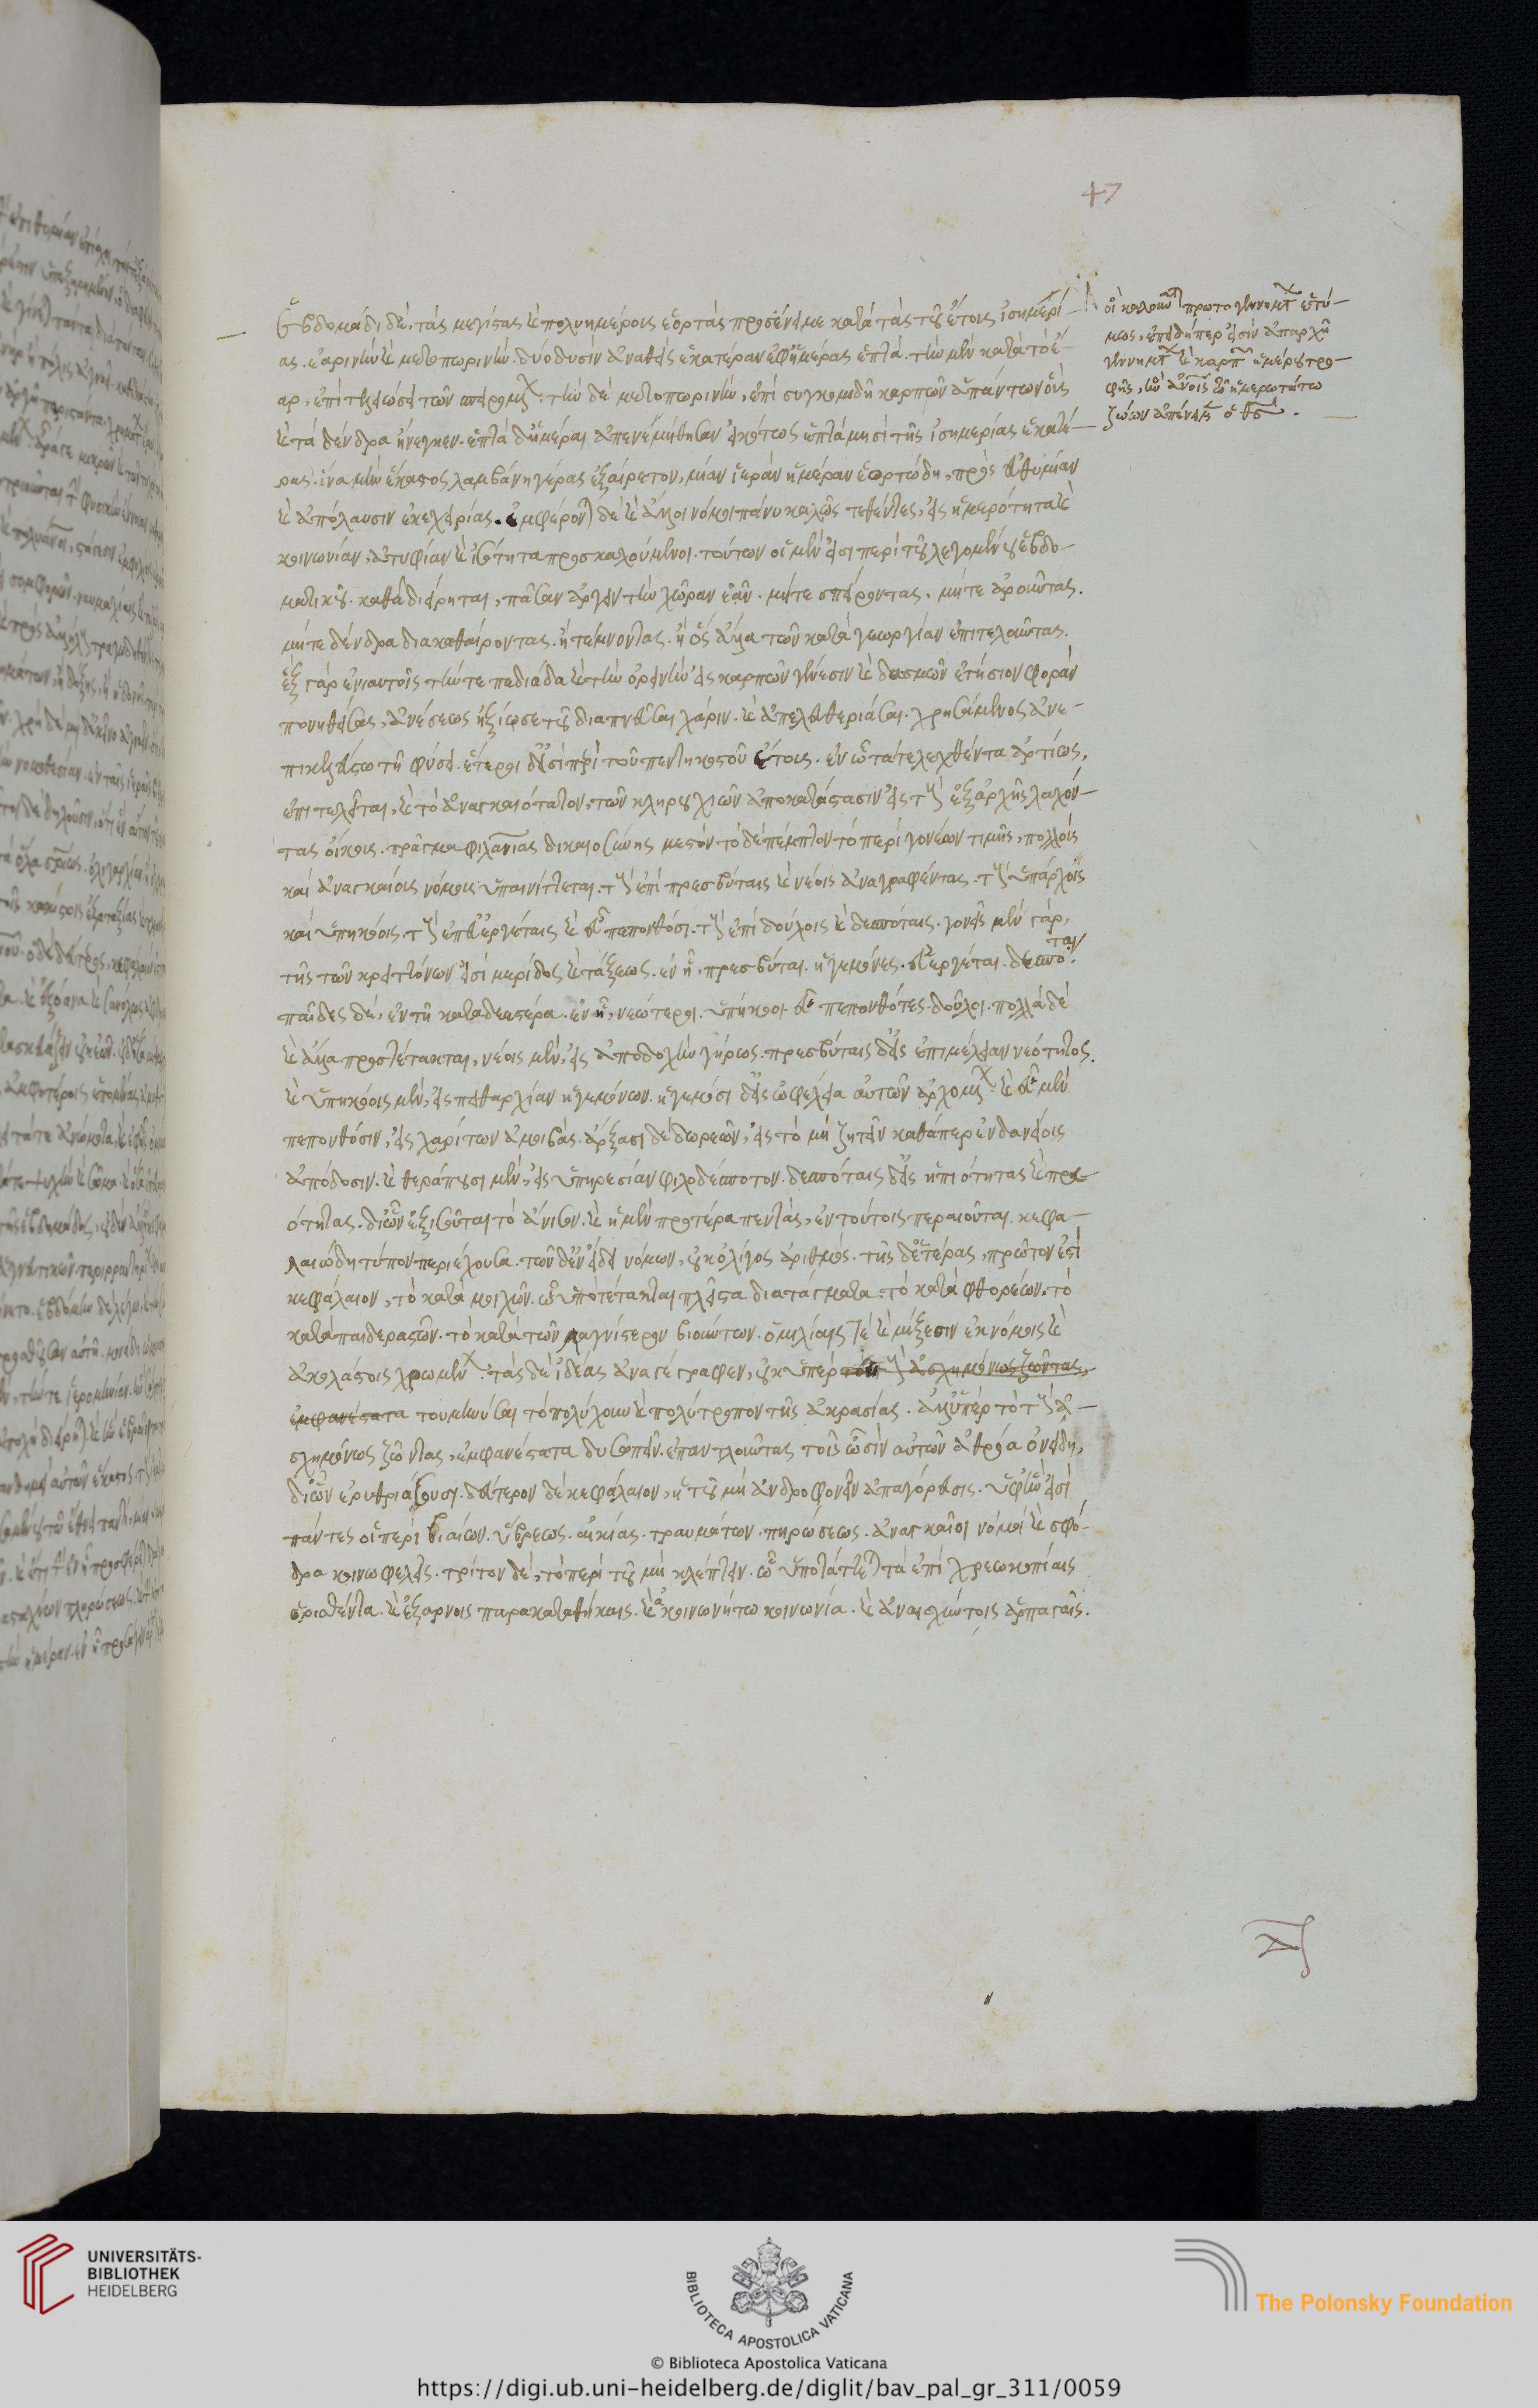 47
Ἑβδομάδι δὲ, τὰς μεγίστας καὶ πολυημέρους ἑορτὰς προσένειμε κατὰ τὰς τοῦ ἔτους ἰσημερί-
ας. ἐαρινὴν καὶ μετοπωρινήν. δύο δυσὶν ἀναθείς ἑκατέραν ἐφ' ἡμέρας ἑπτά. τὴν μὲν κατὰ τὸ ἔ-
αρ, ἐπὶ τελειώσει τῶν σπειρομένων. τὴν δὲ μετοπωρινὴν, ἐπὶ συγκομιδῇ καρπῶν ἁπάντων οὓς
καὶ τὰ δένδρα ἤνεγκεν. ἑπτὰ δ' ἡμέραι ἀπενεμήθησαν εἰκότως ἑπτὰ μησὶ τῆς ἰσημερίας ἑκατέ-
ρας. ἵνα μὴν ἕκαστος λαμβάνῃ γέρας ἐξαίρετον, μίαν ἱερὰν ἡμέραν ἑορτώδη, πρὸς εὐθυμίαν
καὶ ἀπόλαυσιν ἐκεχειρίας. ἐμφέρονται δὲ καὶ ἄλλοι νόμοι πάνυ καλῶς τεθέντες, εἰς ἡμερότητα καὶ
κοινωνίαν, ἀτυφίαν καὶ ἰσότητα προσκαλούμενοι. τούτων οἱ μὲν εἰσι περὶ τοῦ λεγομένου ἑβδο-
ματικοῦ. καθ' ὃ διείρηται, πᾶσαν ἀργεῖν τὴν χώραν ἐᾶν. μήτε σπείροντας, μήτε ἀροῦντας.
μήτε δένδρα διακαθαίροντας. ἢ τέμνοντας. ἢ ὅσ' ἄλλα τῶν κατὰ γεωργίαν ἐπιτελοῦντας.
ἓξ γὰρ ἐνιαυτοῖς τήν τε πεδιάδα καὶ τὴν ὀρεινὴν εἰς καρπῶν γένεσιν καὶ δασμῶν ἐτήσιον φορὰν
πονηθείσας, ἀνέσεως ἠξίωσε τοῦ διαπνεῦσαι χάριν. καὶ ἀπελευθεριάσαι. χρησάμενος ἀνε-
πικελεύστῳ τῇ φύσει. ἕτεροι δ' εἰσὶ περὶ τοῦ πεντηκοστοῦ ἔτους. ἐν ᾧ τά τε λεχθέντα ἀρτίως,
ἐπιτελεῖται, καὶ τὸ ἀναγκαιότατον, τῶν κληρουχιῶν ἀποκατάστασιν εἰς τοὺς ἐξ ἀρχῆς λαχόν-
τας οἴκους. πρᾶγμα φιλανίας δικαιοσύνης μεστόν. τὸ δὲ πέμπτον τὸ περὶ γονέων τιμῆς, πολλοὺς
καὶ ἀναγκαίους νόμους ὑπαινίττεται. τοὺς ἐπὶ πρεσβύταις καὶ νέοις ἀναγραφέντας. τοὺς ὑπάρχοις
καὶ ὑπηκόοις. τοὺς ἐπ' εὐεργέταις καὶ εὖ πεπονθόσι. τοὺς ἐπὶ δούλοις καὶ δεσπόταις. γονεῖς μὲν γὰρ,
τῆς τῶν κρειττόνων εἰσὶ μερίδος καὶ τάξεως. ἐν ᾗ, πρεσβύται. ἡγεμόνες. εὐεργέται. δεσπόται.
παῖδες δὲ, ἐν τῇ καταδεεστέρᾳ. ἐν ᾗ, νεώτεροι. ὑπήκοοι. εὖ πεπονθότες. δοῦλοι. πολλὰ δὲ
καὶ ἄλλα προστέτακται, νέοις μὲν, εἰς ἀποδοχὴν γήρως. πρεσβύταις δ' εἰς ἐπιμέλειαν νεότητος.
καὶ ὑπηκόοις μὲν, εἰς πειθαρχίαν ἡγεμόνων. ἡγεμόσι δ' εἰς ὠφέλειαν αὐτῶν ἀρχομένων. καὶ εὖ μὲν
πεπονθόσιν, εἰς χαρίτων ἀμοιβάς. ἄρξασι δὲ δωρεῶν, εἰς τὸ μὴ ζητεῖν καθάπερ ἐν δανείοις
ἀπόδοσιν. καὶ θεράπουσι μὲν, εἰς ὑπηρεσίαν φιλοδέσποτον. δεσπόταις δ' εἰς ἠπιότητας καὶ πρα-
ότητας. δι' ὧν ἐξισοῦται τὸ ἄνισον. καὶ ἡ μὲν προτέρα πεντὰς, ἐν τούτοις περαιοῦται. κεφα-
λαιώδη τύπον περιέχουσα. τῶν δ' ἐν εἴδει νόμων, οὐκ ὀλίγος ἀριθμός. τῆς δ' ἑτέρας, πρῶτον ἐστὶ
κεφάλαιον, τὸ κατὰ μοιχῶν. ᾧ ὑποτέτακται πλεῖστα διατάγματα. τὸ κατὰ φθορέων. τὸ
κατὰ παιδεραστῶν. τὸ κατὰ τῶν λαγνίστερον βιούντων. ὁμιλίαις τὲ καὶ μίξεσιν ἐκνόμοις καὶ
ἀκολάστοις χρωμένων. τὰς δὲ ἰδέας ἀναγέγραφεν, οὐχ ὑπὲρ τοῦ τοὺς ἀσχημόνως ζῶντας,
ἐμφανέστατα τοῦ μηνύσαι τὸ πολύχουν καὶ πολύτροπον τῆς ἀκρασίας. ἀλλ' ὑπὲρ τὸ τοὺς ἀ-
σχημόνως ζῶντας, ἐμφανέστατα δυσωπεῖν. ἐπαντλοῦντας τοῖς ὠσὶν αὐτῶν ἀθρόα ὀνείδη,
δι' ὧν ἐρυθριάσουσι. δεύτερον δὲ κεφάλαιον, ἡ τοῦ μὴ ἀνδροφονεῖν ἀπαγόρευσις. ὑφ' ἣν εἰσὶ
πάντες οἱ περὶ βιαίων. ὕβρεως. αἰκίας. τραυμάτων. πηρώσεως. ἀναγκαῖοι νόμοι καὶ σφό-
δρα κοινωφελεῖς. τρίτον δὲ, τὸ περὶ τοῦ μὴ κλέπτειν. ᾧ ὑποτάττεται τὰ ἐπὶ χρεωκοπίαις
ὁρισθέντα. καὶ ἐξάρνοις παρακαταθήκαις. καὶ ἀκοινωνήτῳ κοινωνία. καὶ ἀναισχύντοις ἁρπαγαῖς.
οὓ καλοῦσι πρωτογεννημάτων ἐτύ-
μως, ἐπειδήπερ εἰσὶν ἀπαρχὴ
γεννημάτων καὶ καρπῶν ἡμέρου τρο-
φῆς, ἣν ἀνοις τῷ ἡμερωτάτῳ
ζώων ἀπένειμεν ὁ θς.
UNIVERSITÄTS-
BIBLIOTHEK
HEIDELBERG
BIBLIOTECA APOSTOLICA VATICANA
The Polonsky Foundation
© Biblioteca Apostolica Vaticana
https://digi.ub.uni-heidelberg.de/diglit/bav_pal_gr_311/0059